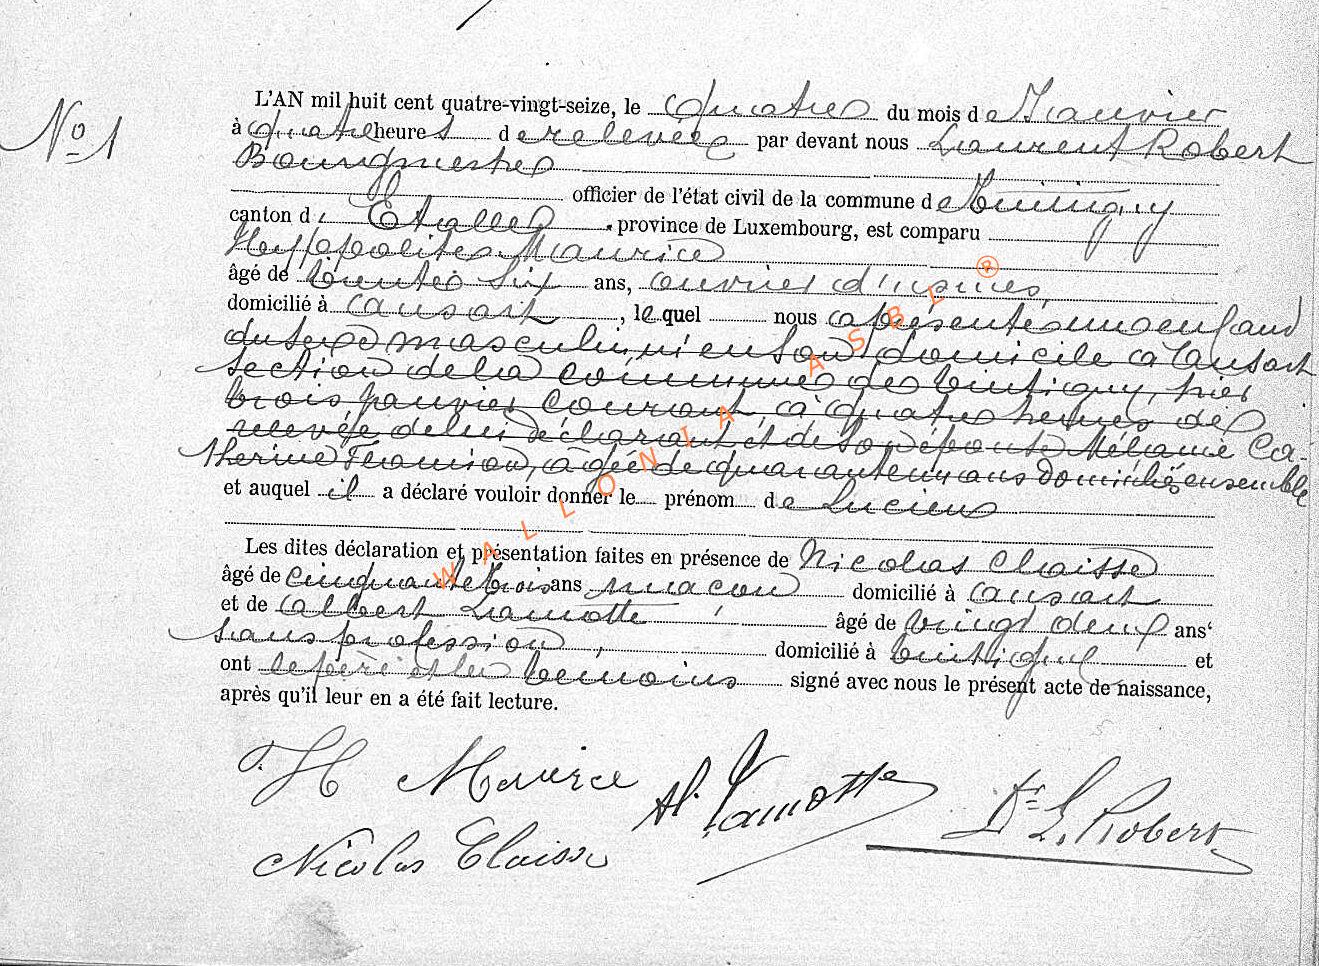 No 1
L'AN mil huit cent quatre-vingt-seize, le quatre du mois de Janvier
à quatre heures de relevée par devant nous Laurent Robert
Bourgmestre
officier de l'état civil de la commune de Tintigny
canton d'Etalle province de Luxembourg, est comparu
Hyppolite Maurice
âgé de trente six ans, ouvrier d'usines,
domicilié à ansart, le quel nous a présenté un enfant
du sexe masculin, né en son domicile à ansart
section de la commune de tintigny, hier
trois janvier courant, à quatre heures de
relevée de lui déclarant et de son épouse Mélanie Ca-
therine, âgée de quarante un ans domiciliés ensemble
et auquel il a déclaré vouloir donner le prénom de Lucien
Les dites déclaration et présentation faites en présence de Nicolas Claisse
âgé de cinquante trois ans maçon domicilié à ansart
et de albert Lamotte, âgé de vingt deux ans
sans profession, domicilié à tintigny et
ont le père et les temoins signé avec nous le présent acte de naissance,
après qu'il leur en a été fait lecture.
H Maurice
Al. Lamotte
Dr L. Robert
Nicolas Claisse
WALLONIA ASBL ®